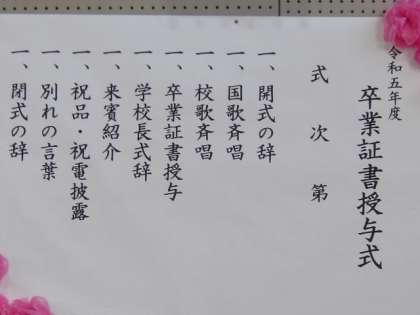 令和五年度
卒業証書授与式
式次第
一、開式の辞
一、国歌斉唱
一、校歌斉唱
一、卒業証書授与
一、学校長式辞
一、来賓紹介
一、祝品・祝電披露
一、別れの言葉
一、閉式の辞